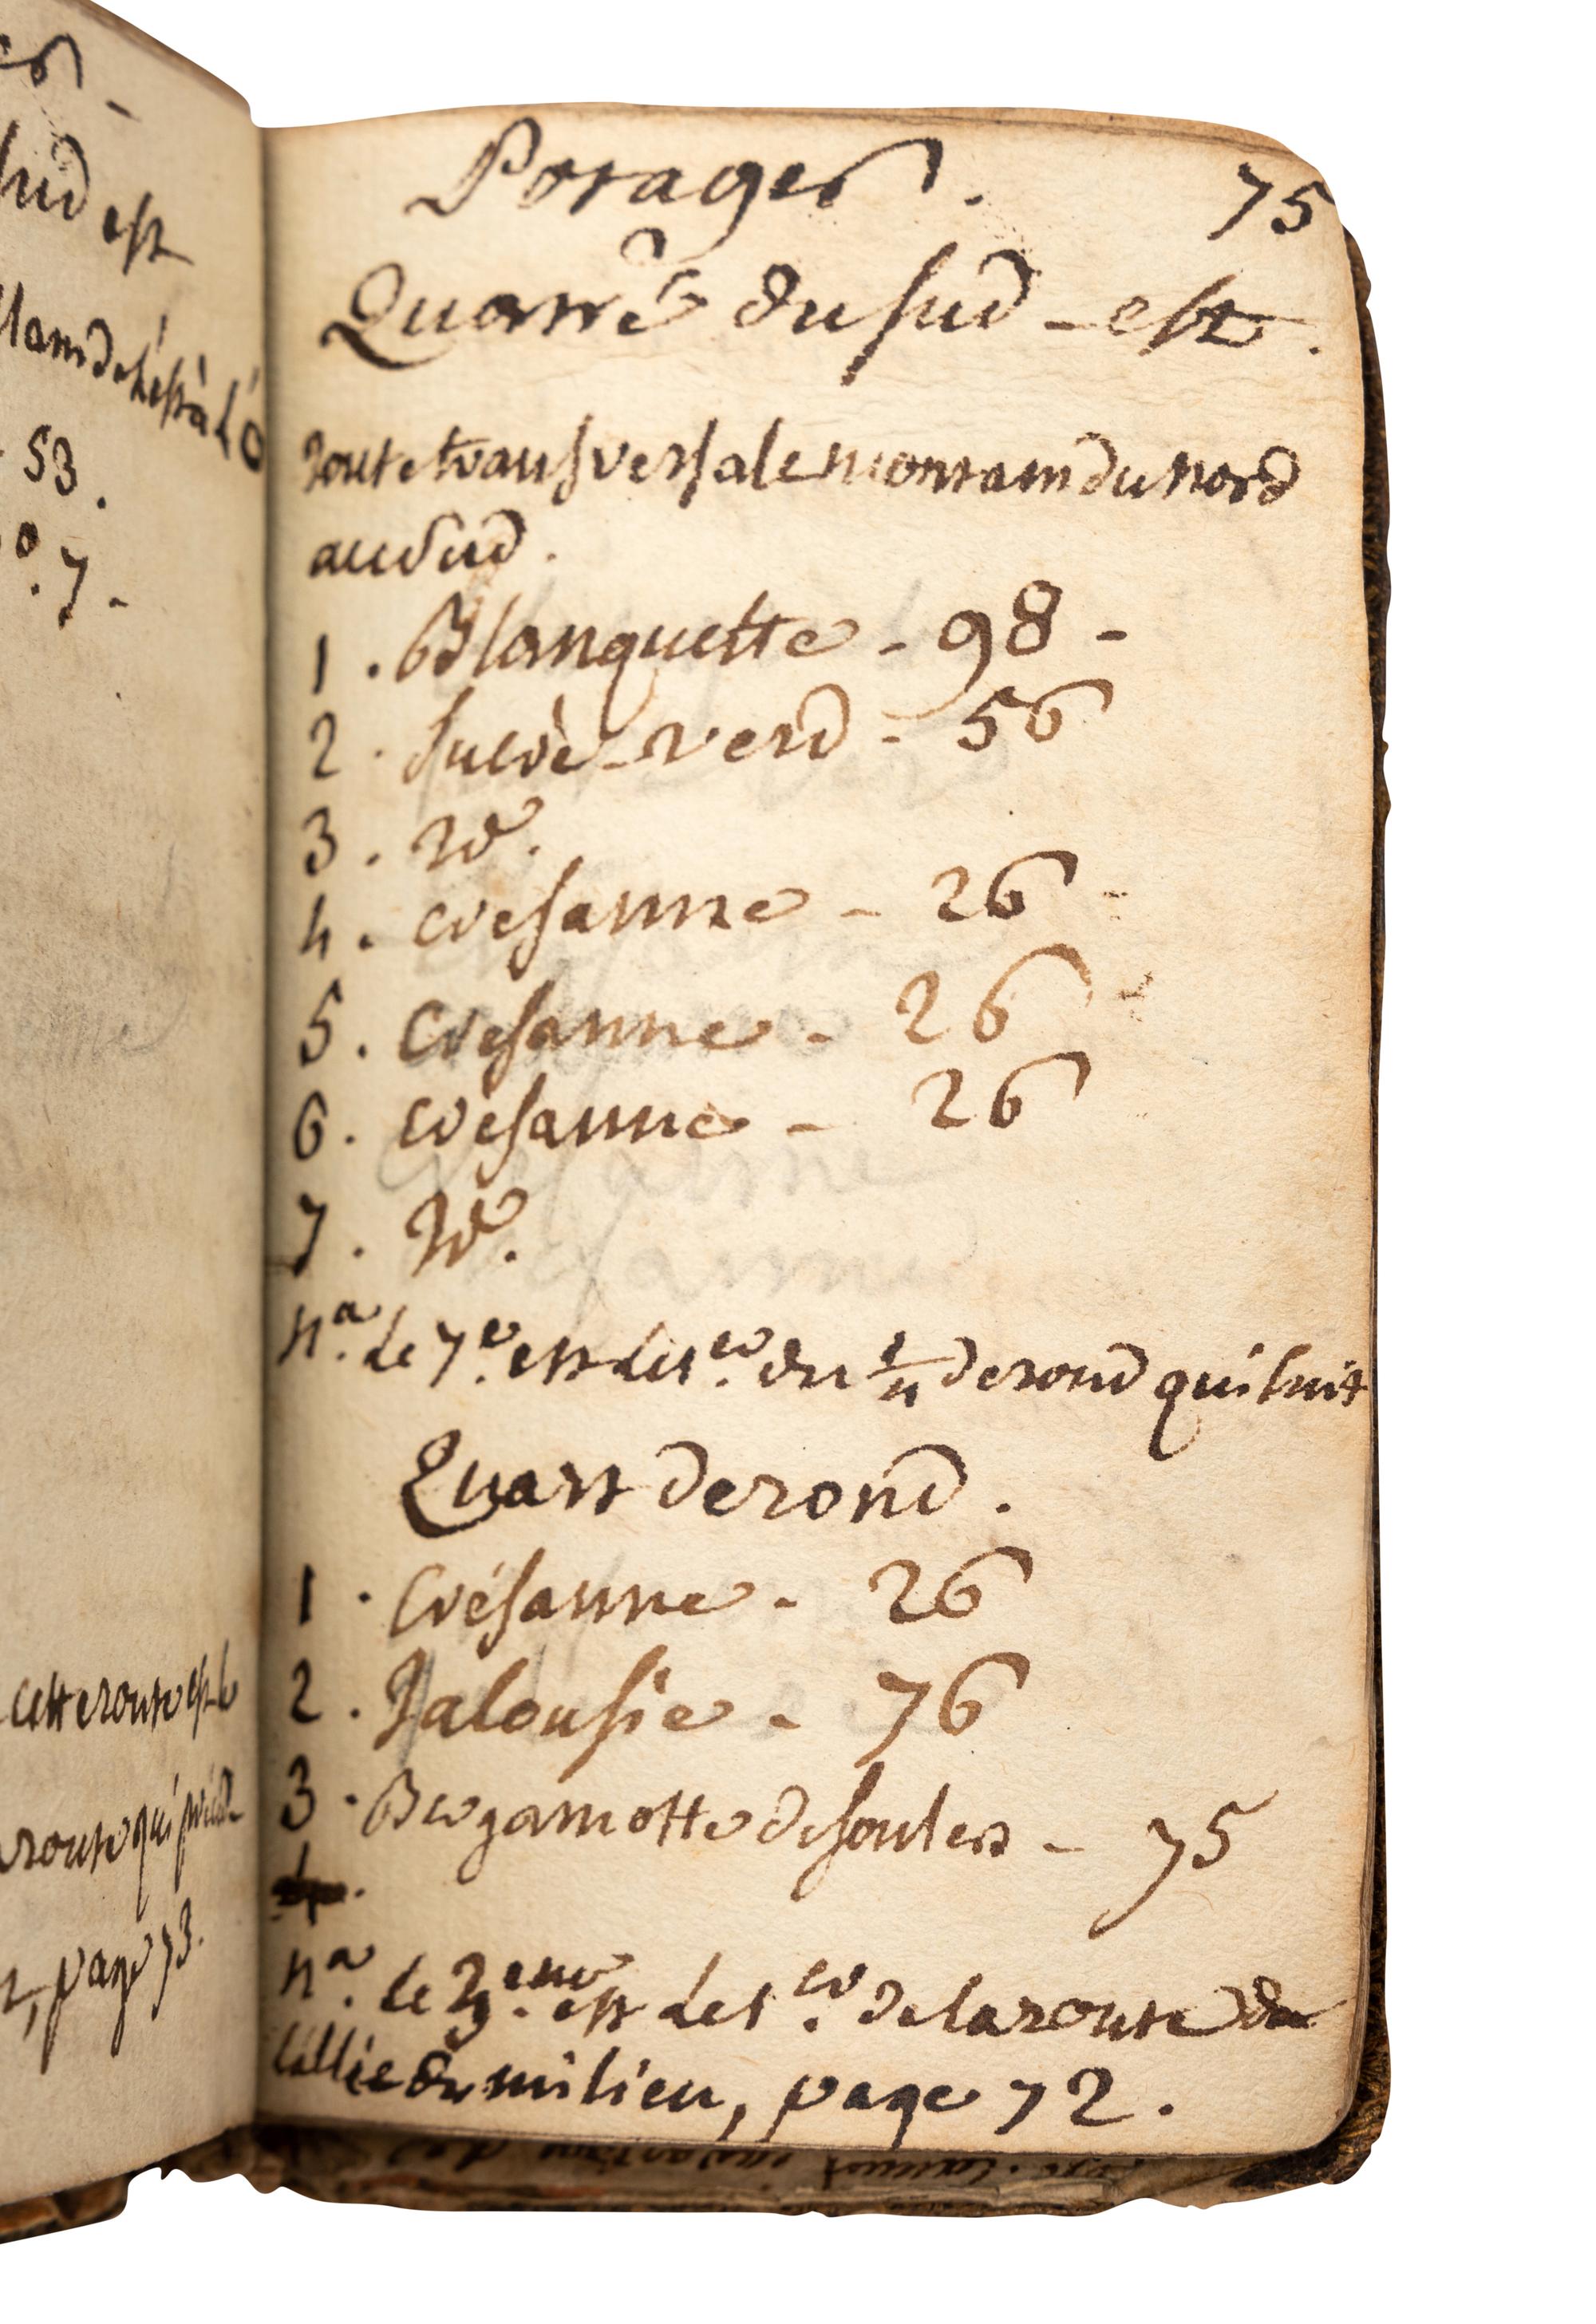 sud est
53.
7.
cette route est le
route qui précède
page 73.
Potager. 75
Quarré du sud-est.
route transversale montant du nord
au sud.
1. Blanquette - 98 -
2. Sucré-verd - 56
3. 
4. cresanne - 26
5. Cresanne - 26
6. cresanne - 26
7. 
Na. Le 7e. est le 1er. du 1/4 de rond qui suit
Quart de rond.
1. Crésanne - 26
2. Jalousie - 76
3. Bergamotte de soulers - 75
4.
Na. le 3eme. est le 1er. de la route de
l'allée du milieu, page 72.